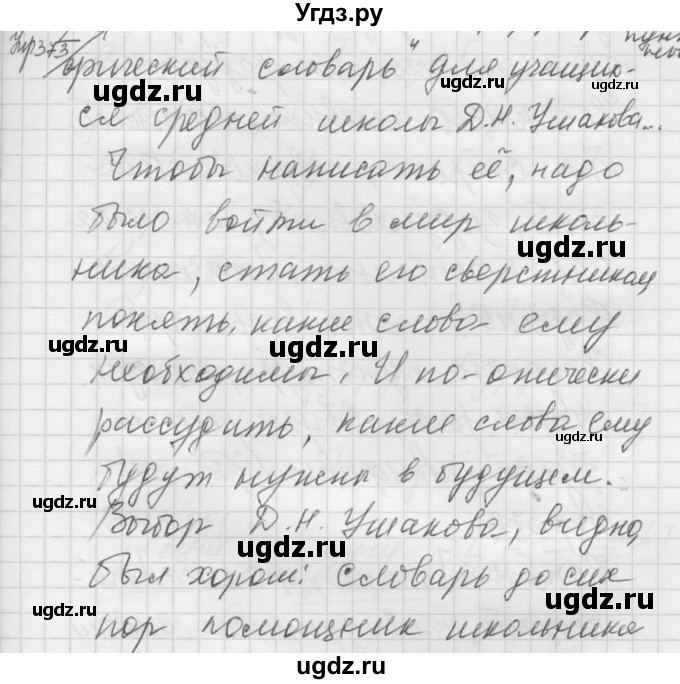 Угдз.ру
Упр373
орический словарь" для учащих-
ugdz.ru ugdz.ru
ся средней школы Д.Н. Ушакова...
ugdz.ru
Чтобы написать её, надо
было войти в мир школь-
ugdz.ru
ника, стать его сверстником
понять, какие слова ему
ugdz.ru ugdz.ru
необходимы. И по-отически
рассудить, какие слова ему
ugdz.ru
будут нужны в будущем.
ugdz.ru
Выбор Д.Н. Ушакова, видно,
ugdz.ru
был хорош: словарь до сих
ugdz.ru ugdz.ru
пор помощник школьника
ugdz.ru